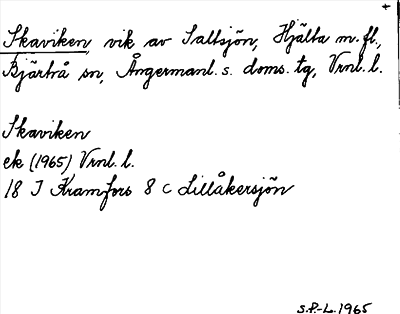 +
Skaviken, vik av Saltsjön, Hjälta m.fl.,
Bjärtrå sn, Ångermanl. s. doms. tg, Vrnl. l.
Skaviken
ek (1965) Vrnl. l.
18 J Kramfors 8 c Lillåkersjön
S.P.-L. 1965